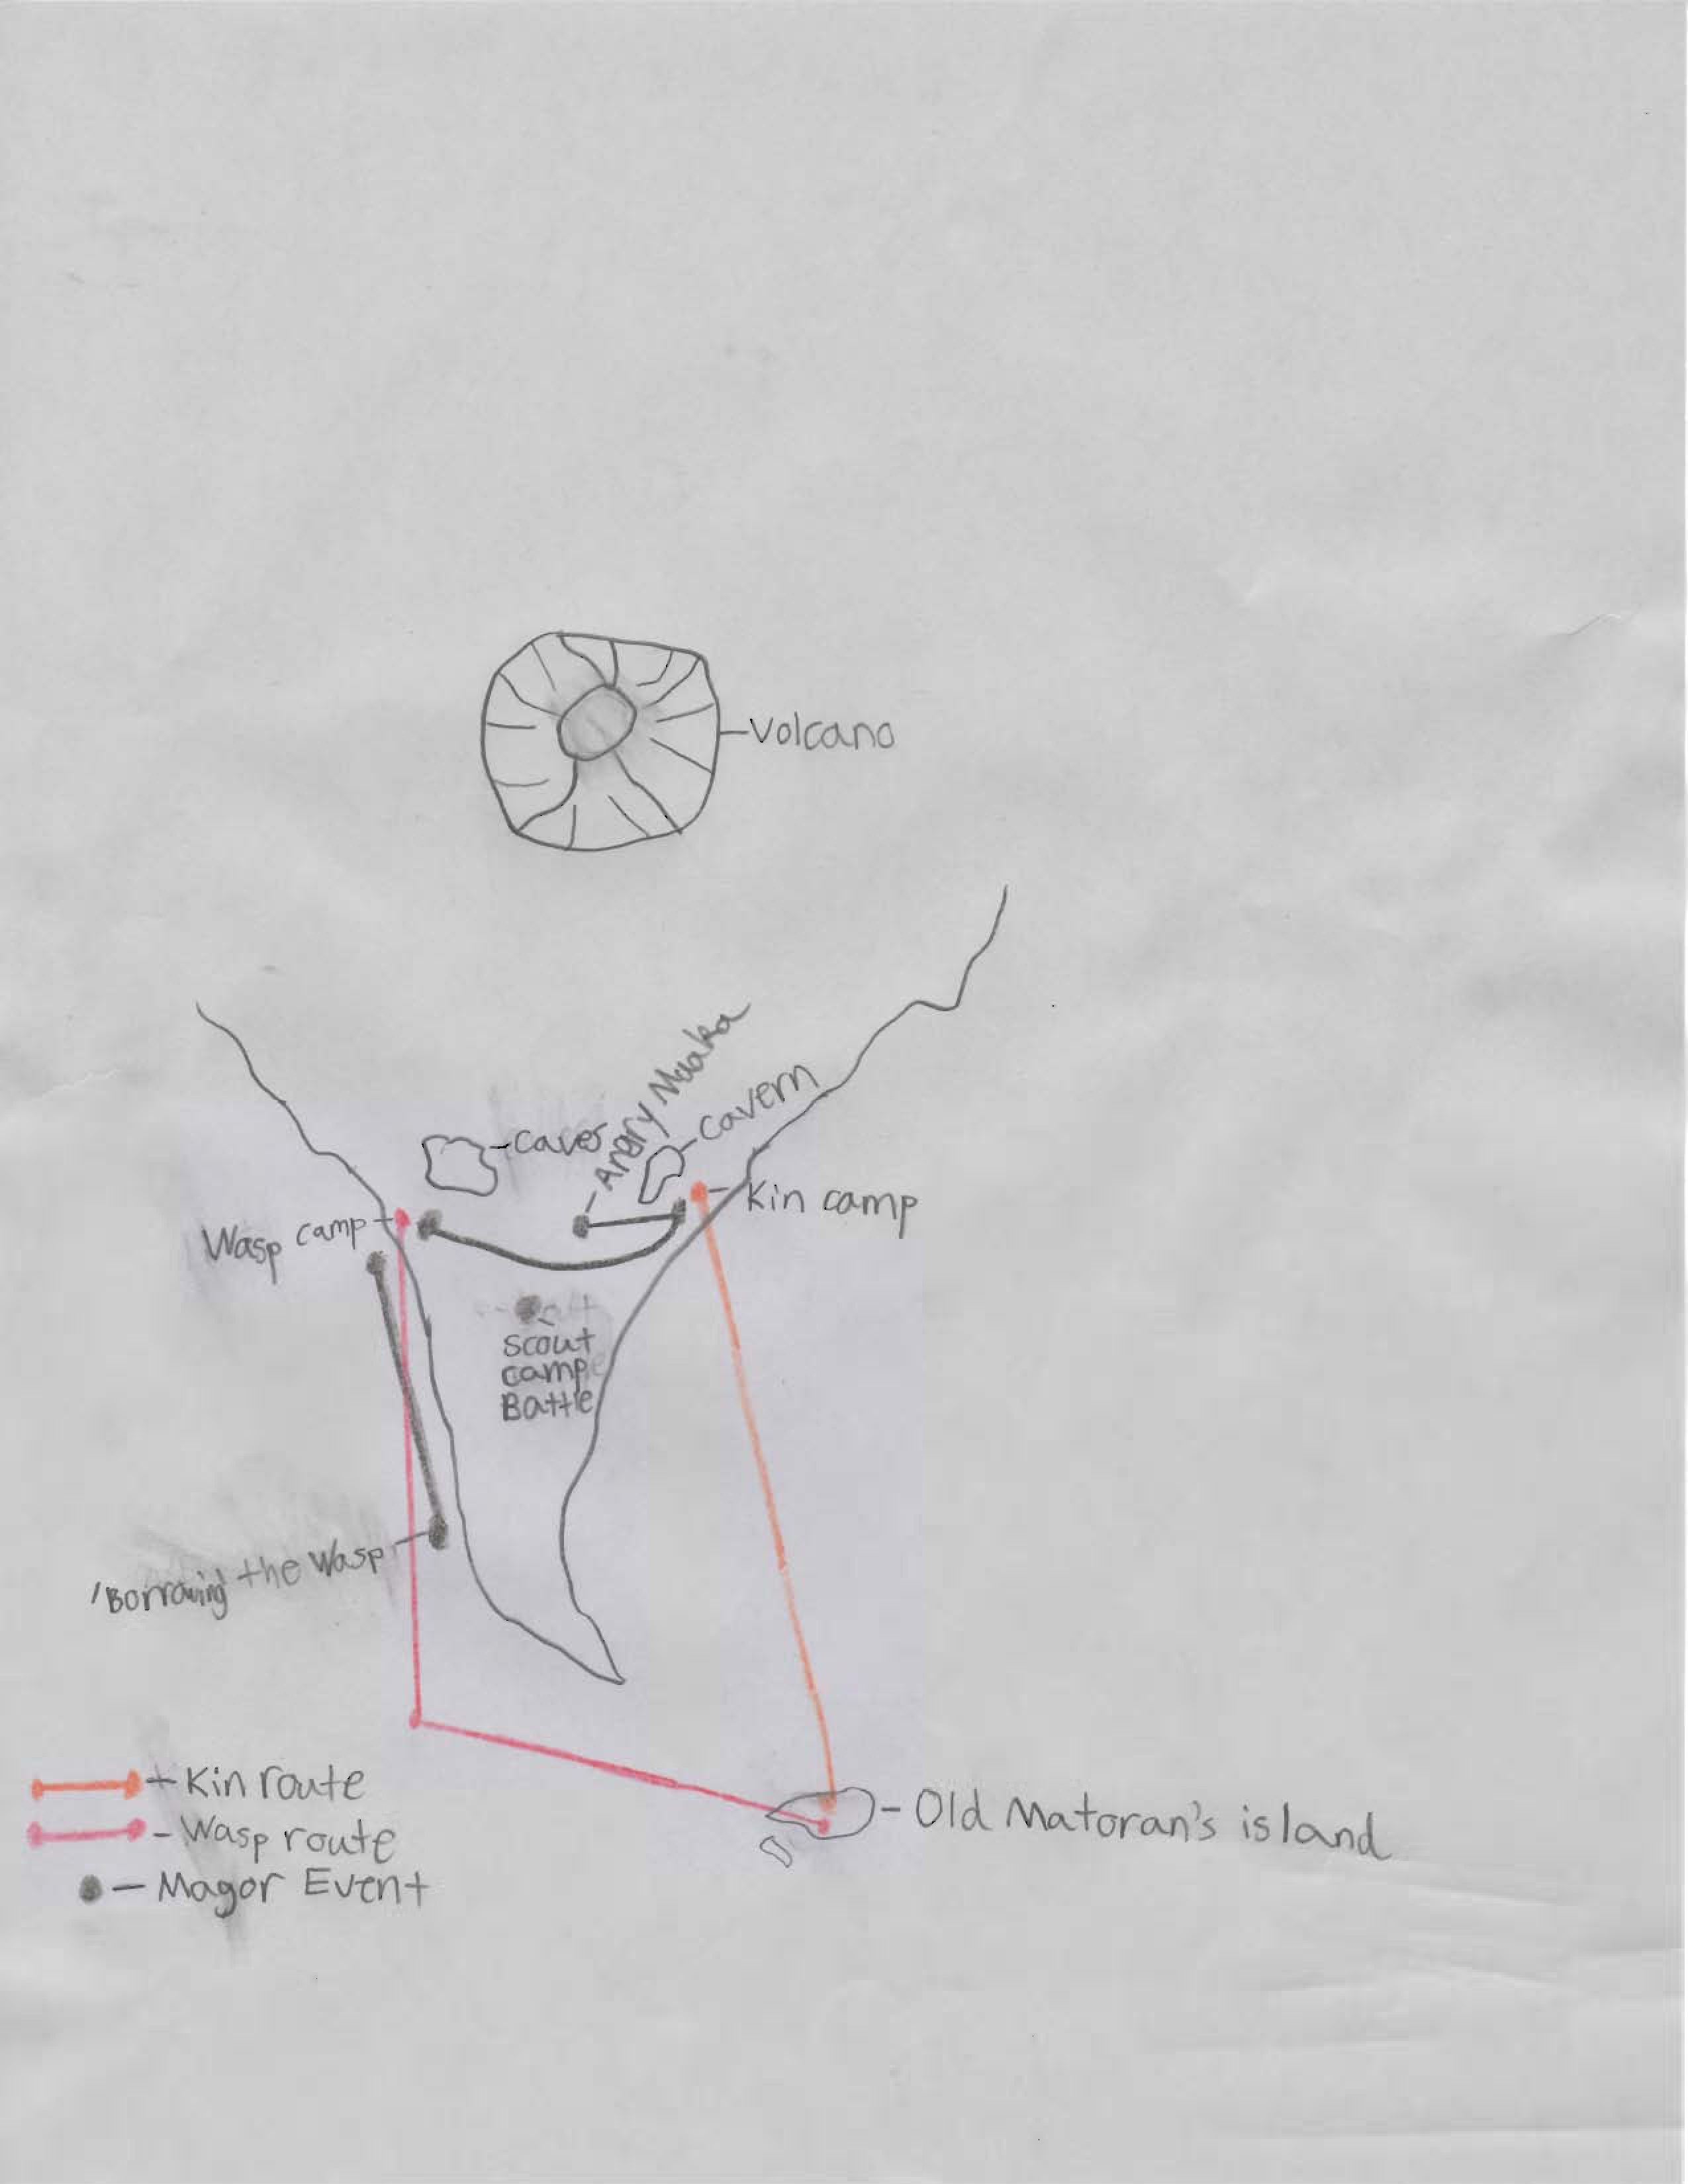 Volcano
Angry Muaka
Cavern
Caves
Kin camp
Wasp camp
scout
camp
Battle
'Borrowing' the Wasp
Kin route
Wasp route
Magor Event
Old Matoran's island